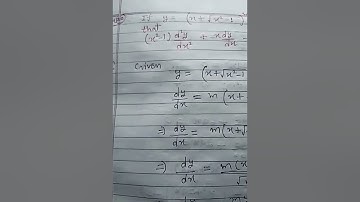 If y = (x + √x²-1
that
(x²-1) d²y/dx² + x dy/dx =
Given
y = (x+√x²-1
dy/dx = m(x+
⇒ dy/dx = m(x+√
⇒ dy/dx = m(x/√